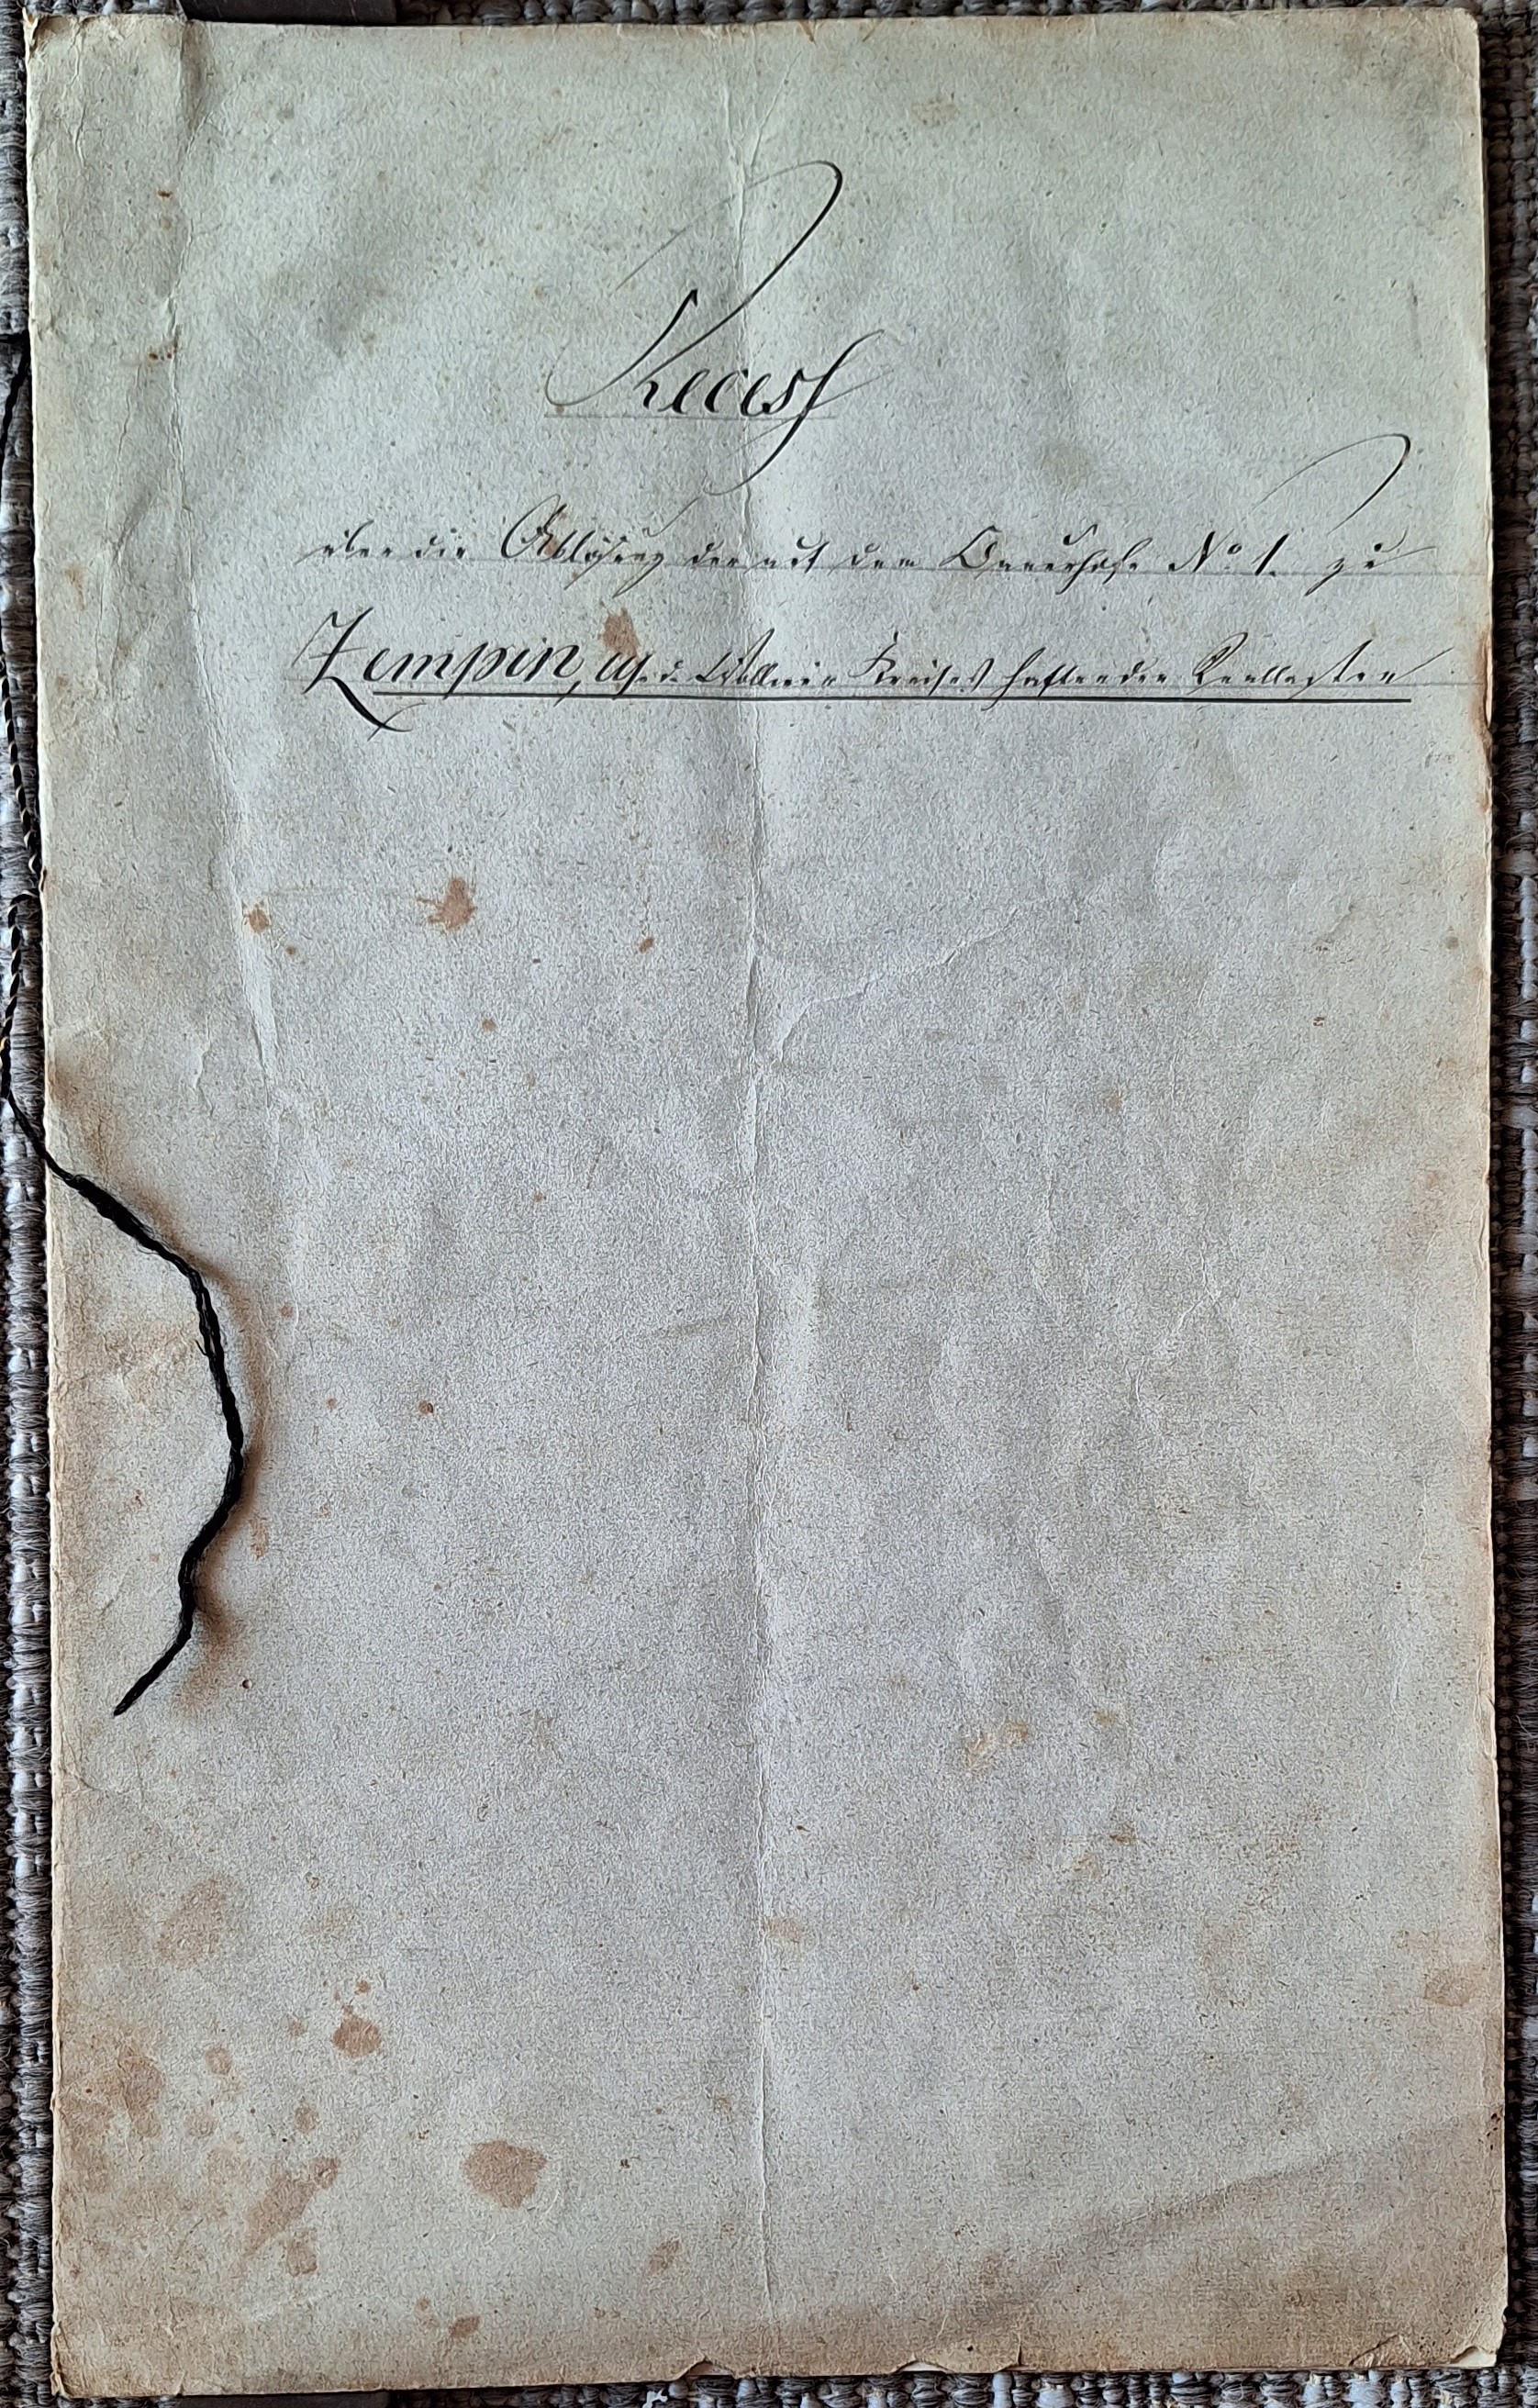 Recess
über die Ablösung der auf dem Bauerhofe No 1. zu
Zempin, Us. d. Wollin Kreises haftenden Reallasten